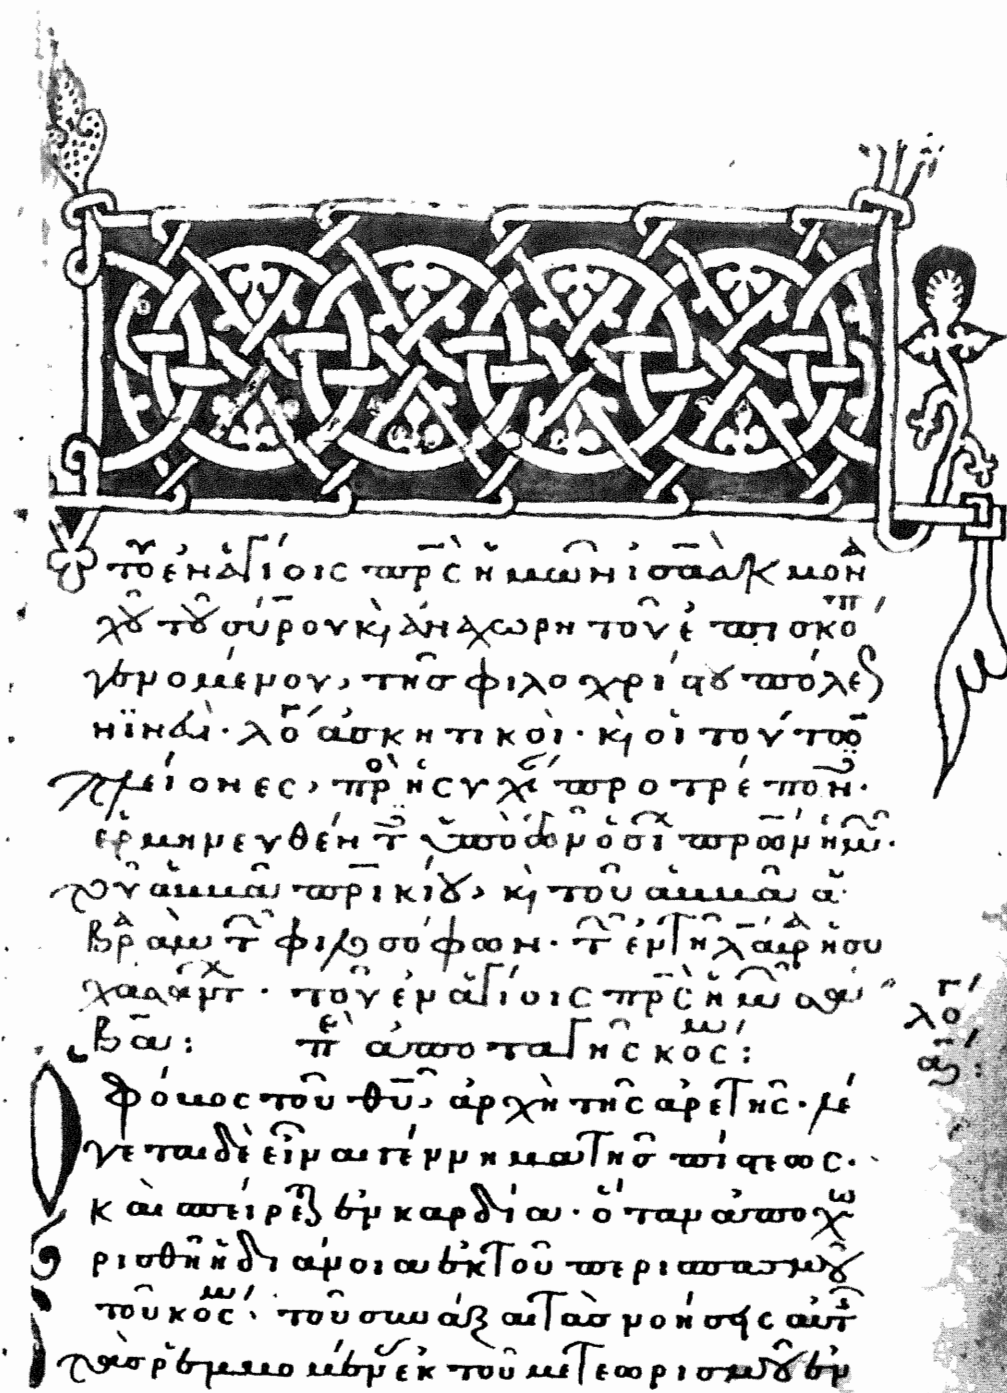 τοῦ ἐν ἁγίοις πρς ἡμῶν ἰσαὰκ μον
χοῦ τοῦ σύρου κ ἀναχωρητοῦ ἐπισκο
γενομένου, τῆς φιλοχρίστου πόλεως
νϊνευὶ· λόγοι ἀσκητικοὶ· κ οἱ τούτου
μείονες, πρὸς ἡσυχίαν προτρέπον·
ἑρμηνευθέν ὑπὸ τῶν ὁσίων πρων ἡμῶν·
τοῦ ἀββᾶ πρικίου, κ τοῦ ἀββᾶ ἀ
βρααμ τῶν φιλοσόφων· τῶν ἐν τῆ λαύρα ἡσυ
χασάντων· τοῦ ἐν ἁγίοις πρς ἡμῶν σά
βα: περὶ ἀποταγῆς κόσμου:
λόγος α:
Ὁ φόβος τοῦ θυ, ἀρχὴ τῆς ἀρετῆς· λέ
γεται δὲ εἶναι γέννημα τῆς πίστεως·
καὶ σπείρεται ἐν καρδία· ὅταν ἀποχω
ρισθῆ ἡ διάνοια ἐκ τοῦ περισπασμοῦ
τοῦ κόσμου· τοῦ συνάξαι τὰς νοήσεις αὐτῆς
τὰς ῥεμβομένας ἐκ τοῦ μετεωρισμοῦ ἐν